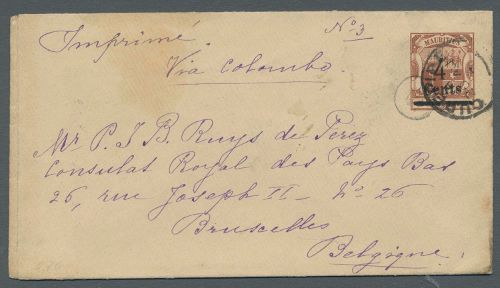 Imprimé
No 3
Via Colombo
MAURITIUS
4
Cents
Mr P. J B. Ruys de Perez
Consulat Royal des Pays Bas
26, rue Joseph II - No 26
Bruxelles
Belgique.